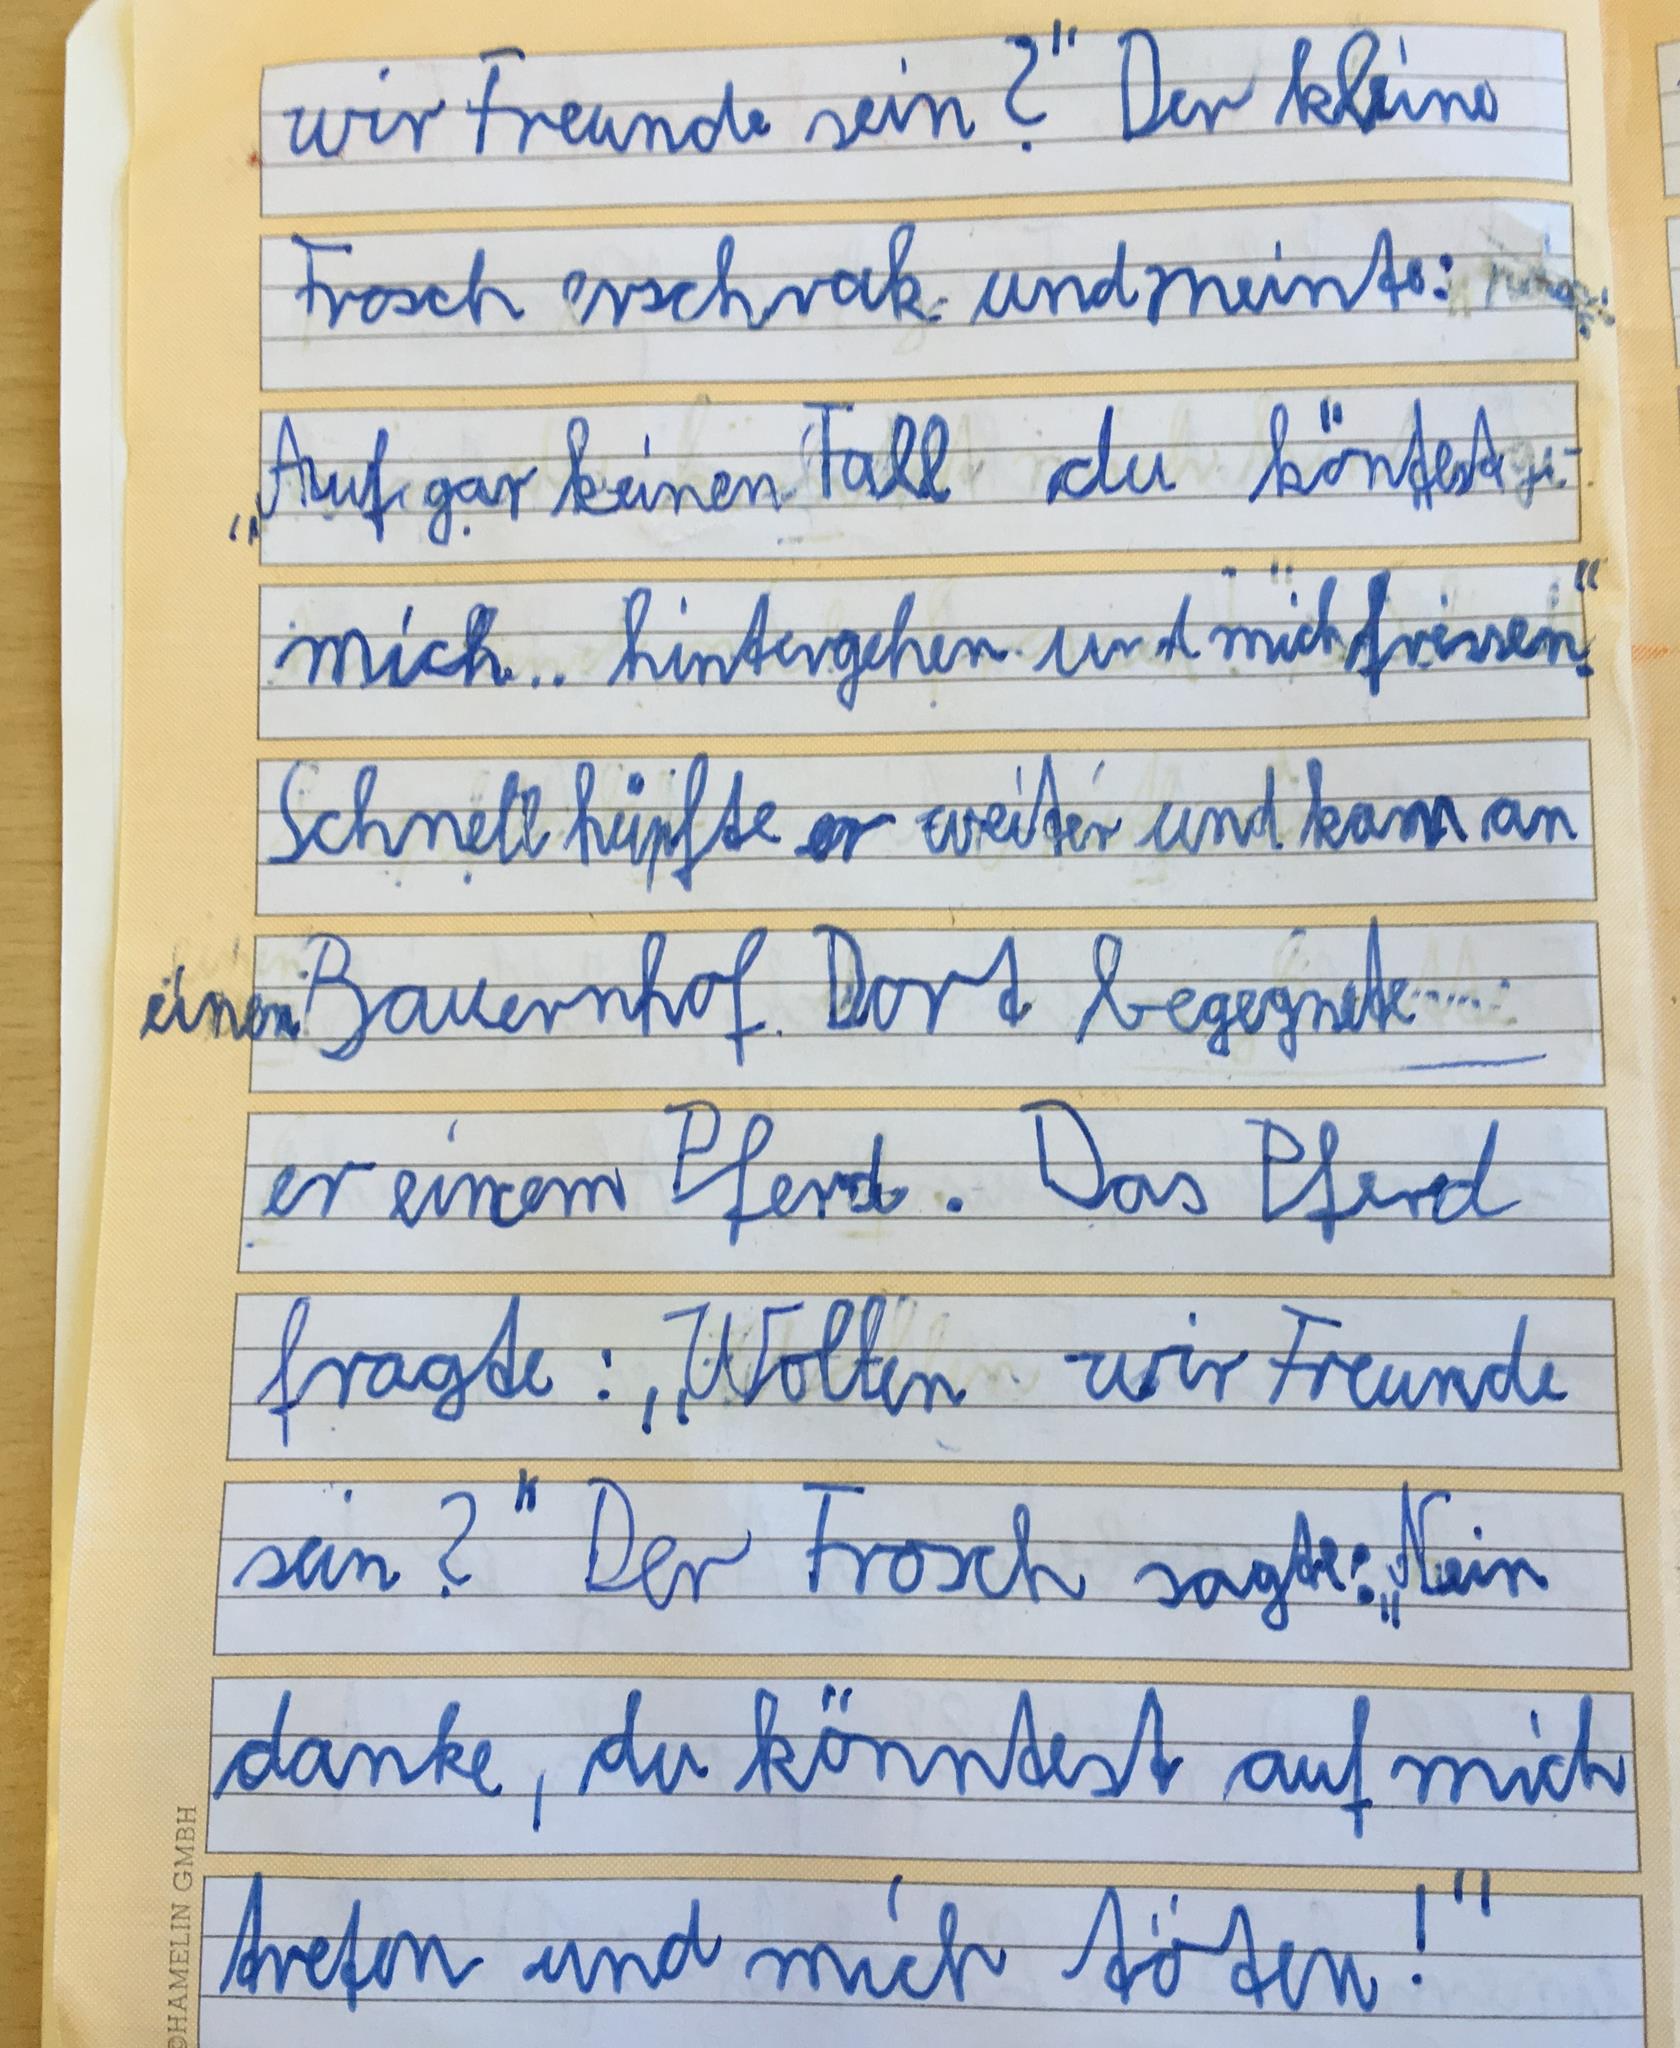 wir Freunde sein?" Der kleine
Frosch erschrak und meinte:
„Auf gar keinen Fall du köntest
mich hintergehen und mich fressen."
Schnell hüpfte er weiter und kam an
einen Bauernhof. Dort begegnete
er einem Pferd. Das Pferd
fragte: „Wollen wir Freunde
sein?" Der Frosch sagte: „Nein
danke, du könntest auf mich
treten und mich töten!"
©HAMELIN GMBH